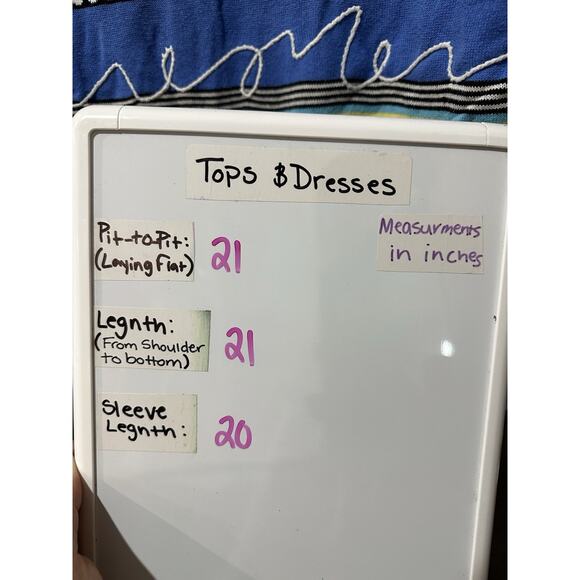 Tops & Dresses
Measurments
in inches
Pit-to-Pit:
(Laying Flat)
21
Legnth:
(From Shoulder
to bottom)
21
Sleeve
Legnth:
20